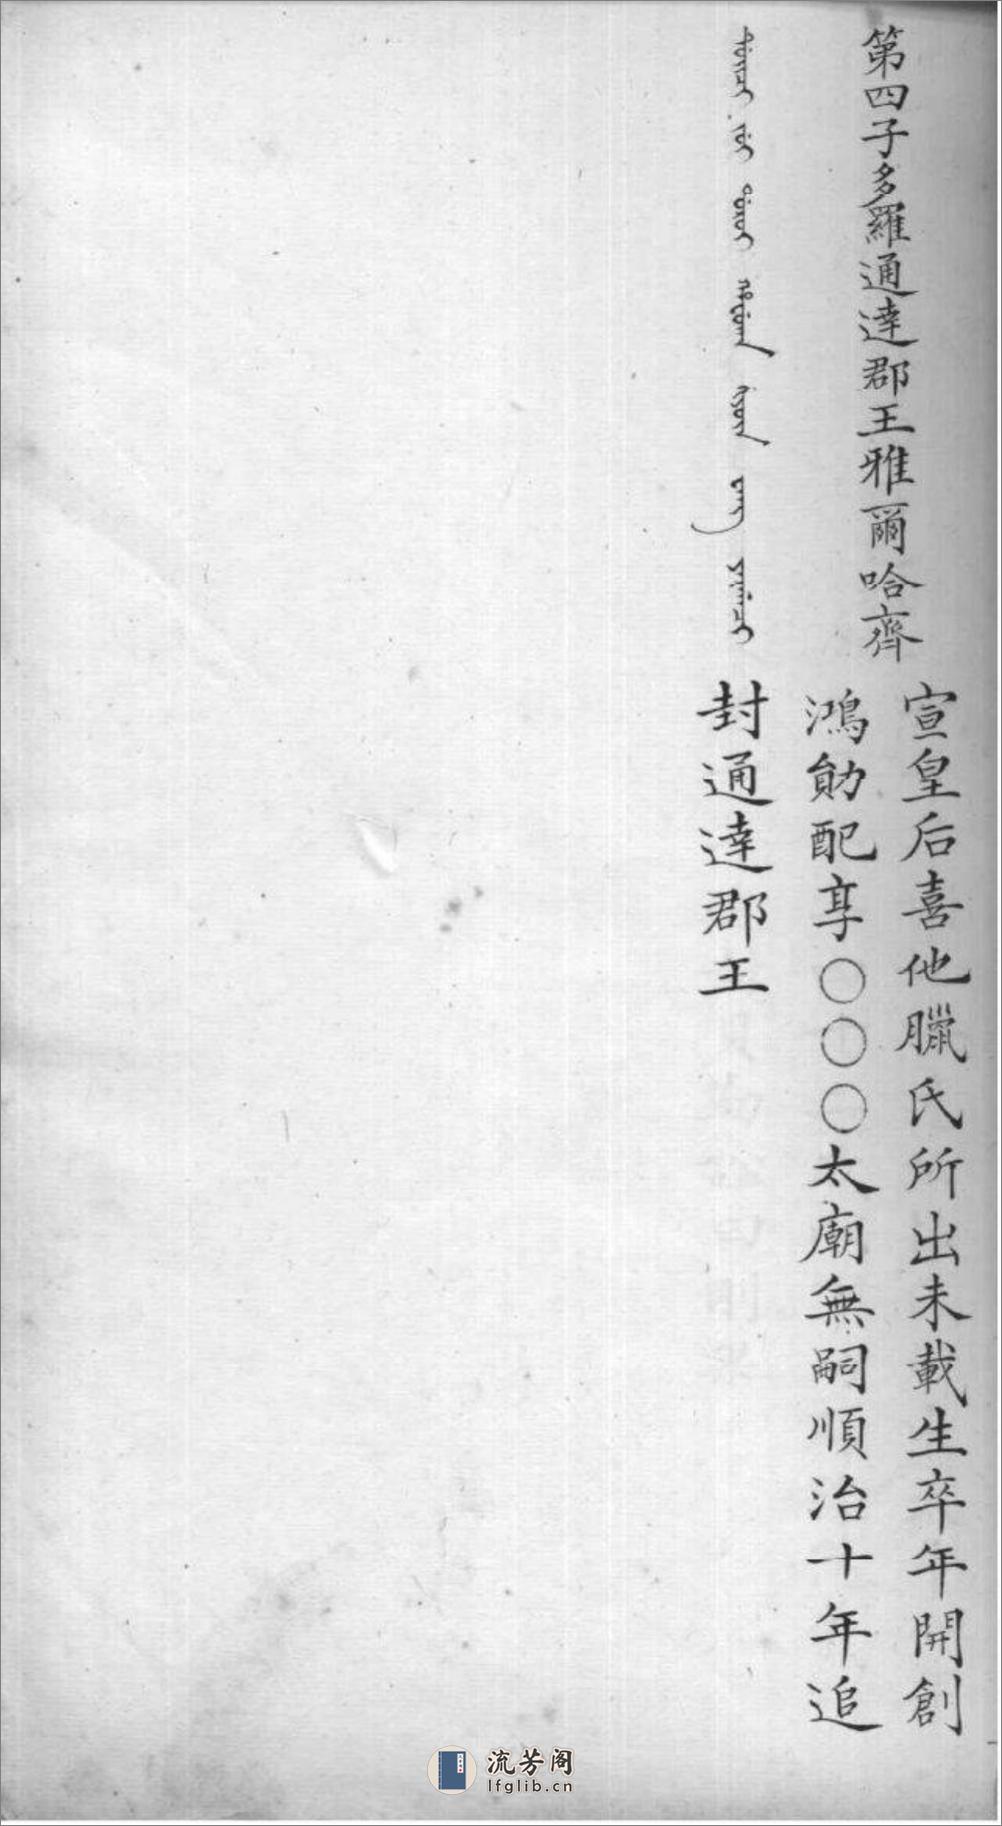 第四子多羅通達郡王雅爾哈齊
宣皇后喜他臘氏所出未載生卒年開創
鴻勛配享〇〇〇太廟無嗣順治十年追
封通達郡王
流芳阁
lfglib.cn